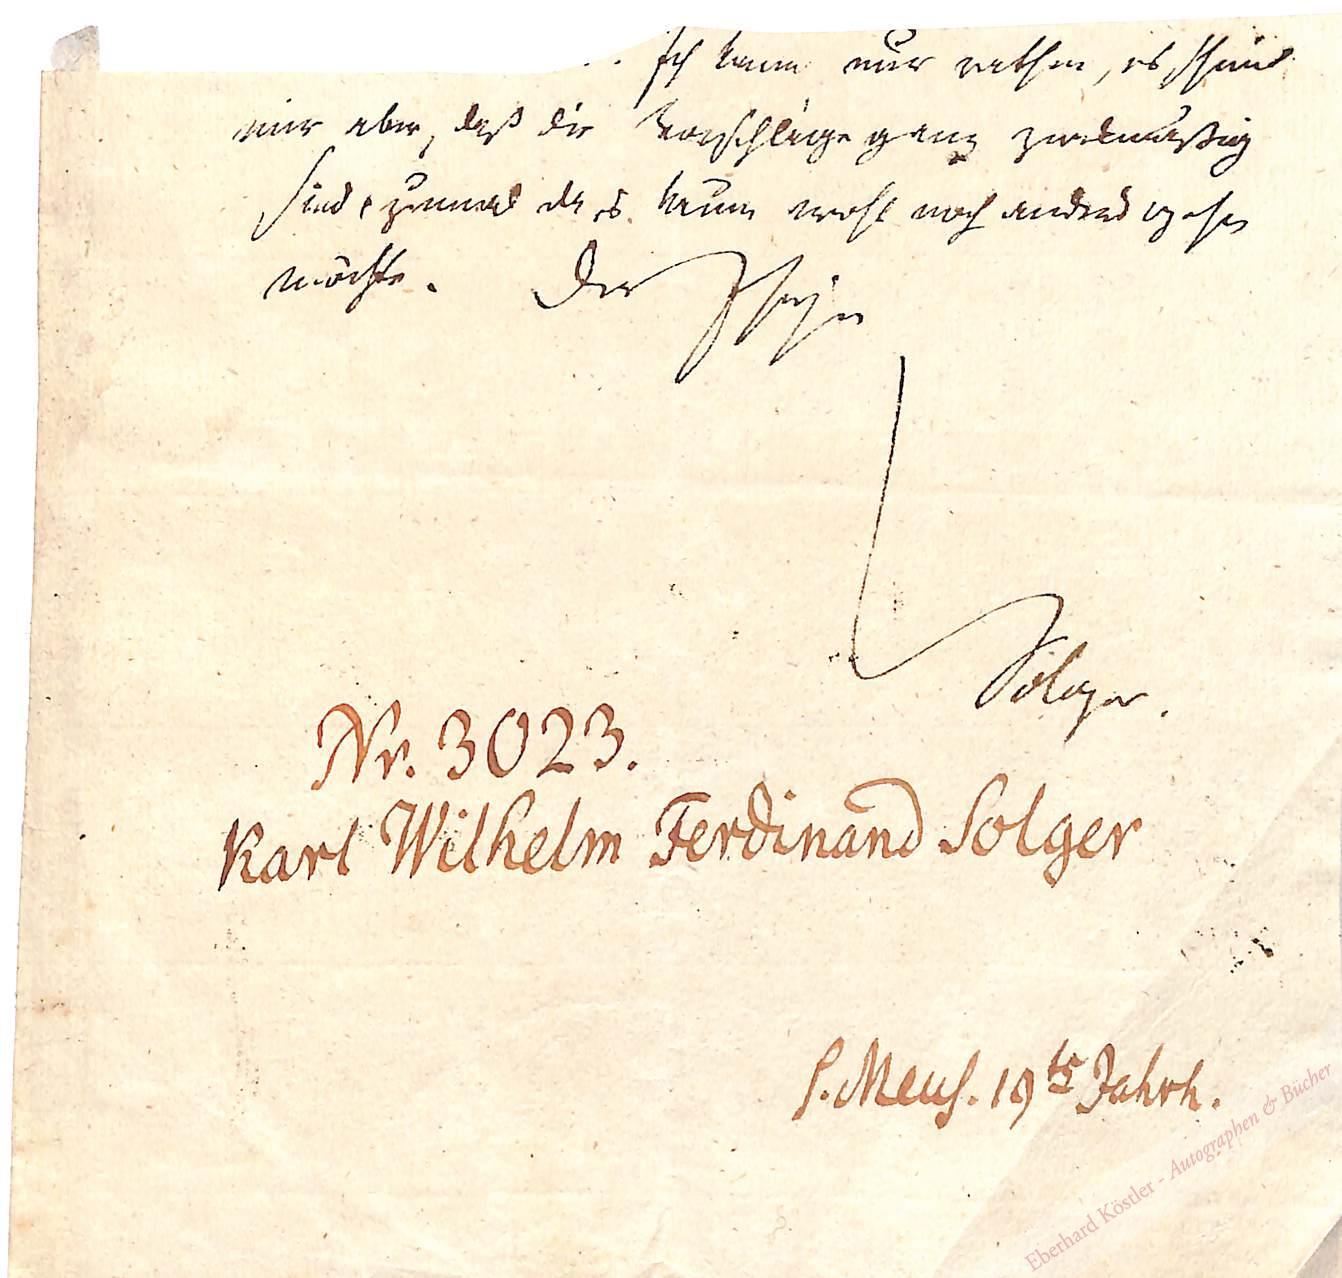 Ich kann nur rathen, es scheint
mir aber, daß die Vorschläge ganz zweckmäßig
sind, zumal da es kaum wohl noch anders gehen
möchte. Der Ihrige
Solger.
Nr. 3023.
Karl Wilhelm Ferdinand Solger
S. Meus. 19ts Jahrh.
Eberhard Köstler - Autographen & Bücher